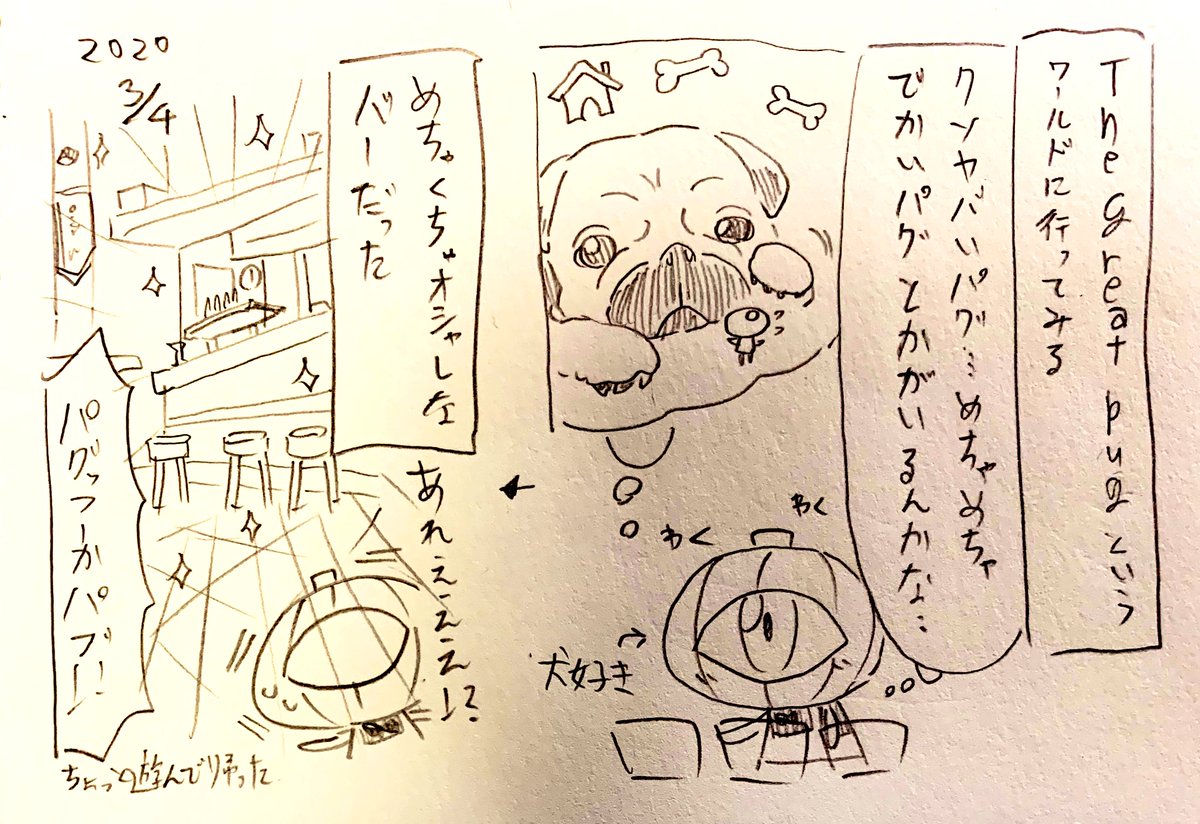 The Great pugという
ワールドに行ってみる
クソヤバいパグ…めちゃめちゃ
でかいパグとかがいるんかな…
わく
わく
犬好き
2020
3/4
めちゃくちゃオシャレな
バーだった
あれぇーえぇー!?
パグッつーかパブ!!
ちょっと遊んで帰った